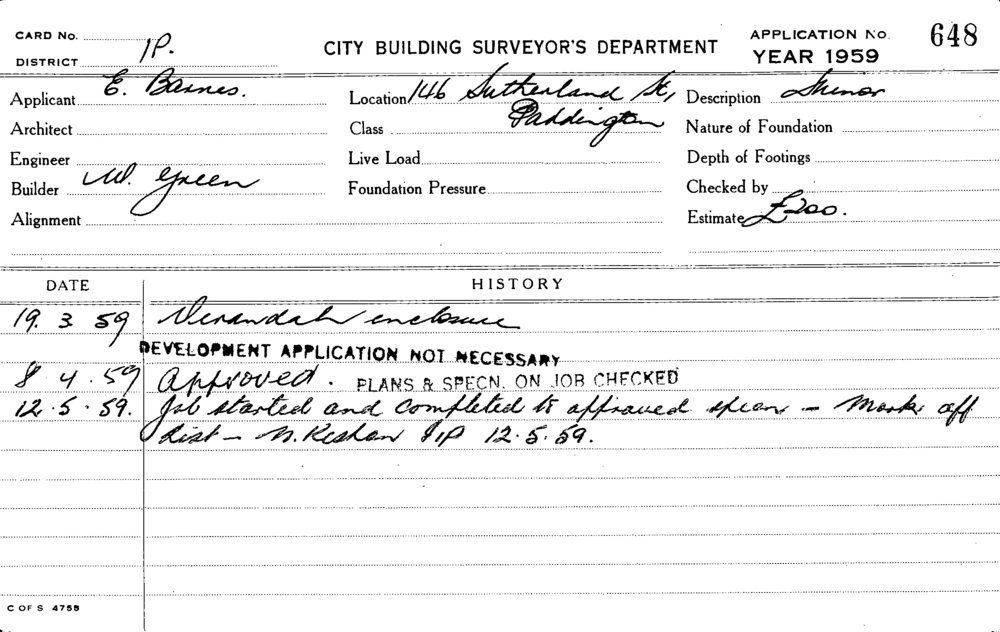 CARD No.
DISTRICT 1P.
CITY BUILDING SURVEYOR'S DEPARTMENT
APPLICATION No. 648
YEAR 1959
Applicant E. Barnes. Location 146 Sutherland St, Description Minor
Architect Class Paddington Nature of Foundation
Engineer Live Load Depth of Footings
Builder W. Green Foundation Pressure Checked by
Alignment Estimate £200.
DATE HISTORY
19. 3 59 Verandah enclosure
DEVELOPMENT APPLICATION NOT NECESSARY
8 4. 59 Approved. PLANS & SPECN. ON JOB CHECKED
12. 5. 59. Job started and completed to approved specn - Mark off
List - 1P 12.5.59.
C OF S 4758